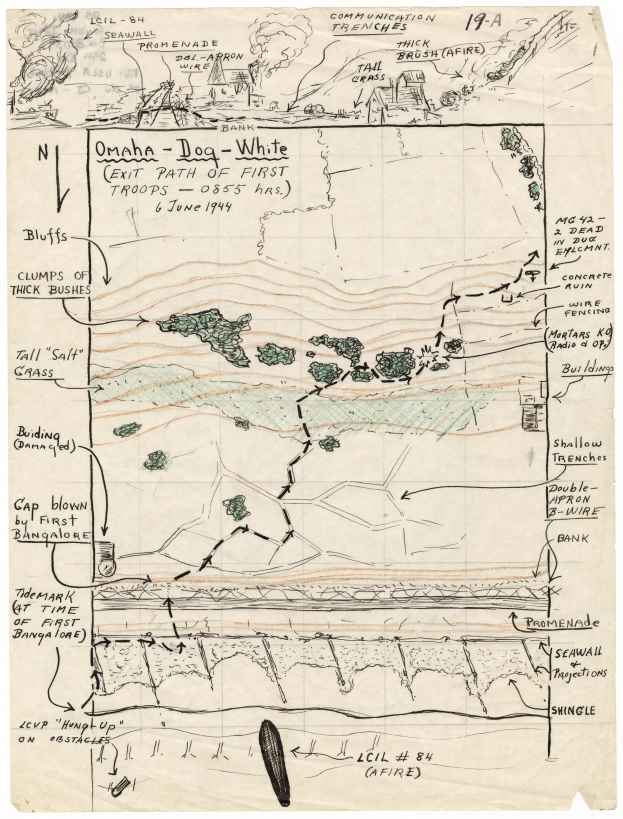 LCIL-84
SEAWALL
PROMENADE
DBL-APRON
WIRE
COMMUNICATION
TRENCHES
19-A
THICK
BRUSH (AFIRE)
TALL
GRASS
84
BANK
N
OMAHA - DOG - WHITE
(EXIT PATH OF FIRST
TROOPS - 0855 hrs.)
6 JUNE 1944
Bluffs
CLUMPS OF
THICK BUSHES
Tall "Salt"
GRASS
Buiding
(DAMAGED)
GAP blown
by FIRST
BANGALORE
TIDEMARK
(AT TIME
OF FIRST
BANGALORE)
LCVP "HUNG-UP"
ON OBSTACLES
MG 42 -
2 DEAD
IN DUG
EMLCMNT.
CONCRETE
RUIN
WIRE
FENCING
(MORTARS K.O.
Radio & OP)
Buildings
Shallow
TRENCHES
Double-
APRON
B-WIRE
BANK
PROMENADE
SEAWALL
&
Projections
SHINGLE
LCIL # 84
(AFIRE)